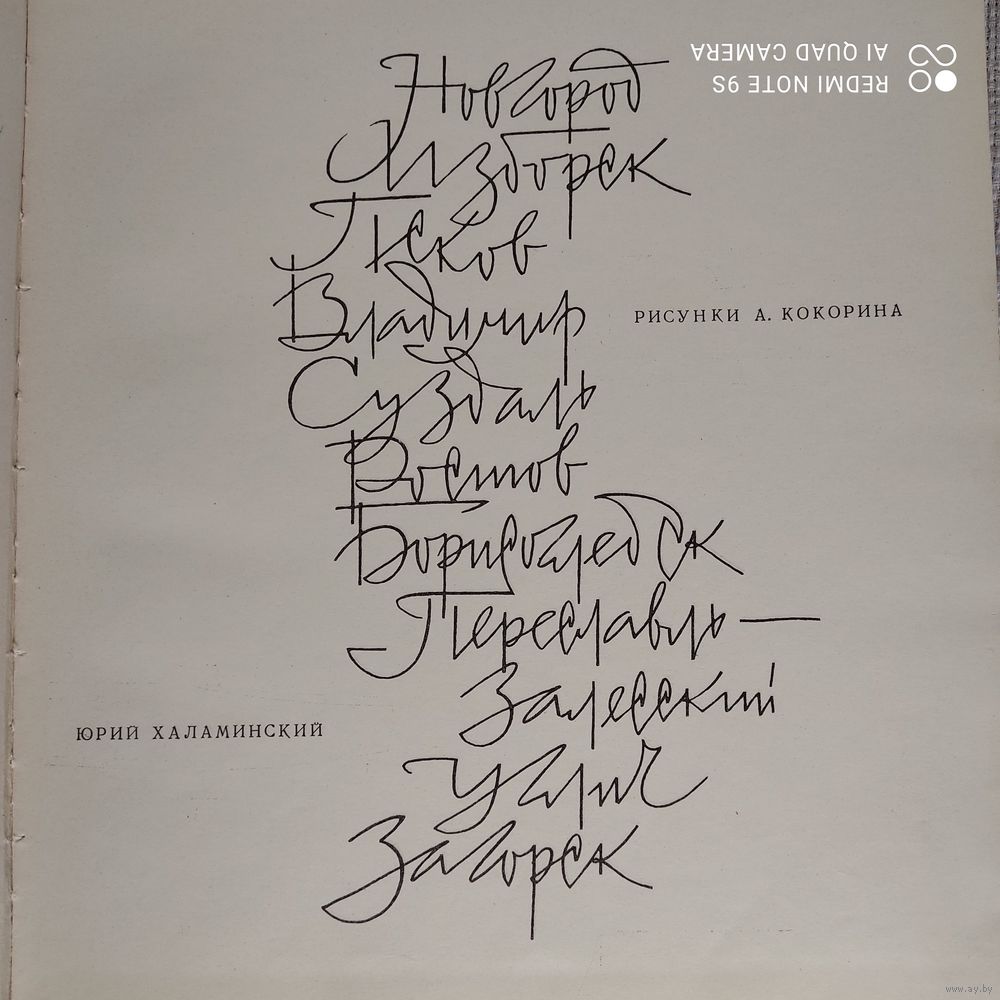 REDMI NOTE 9S
AI QUAD CAMERA
Новгород
Изборск
Псков
Владимир
РИСУНКИ А. КОКОРИНА
Суздаль
Ростов
Борисоглебск
Переславль—
Залесский
ЮРИЙ ХАЛАМИНСКИЙ
Углич
Загорск
www.ay.by